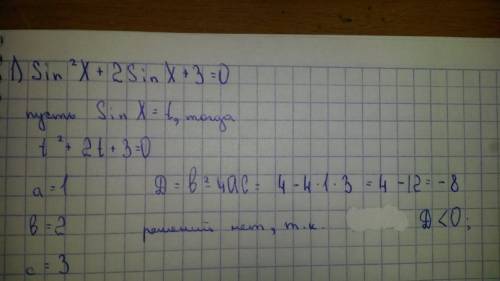 1) Sin²X + 2SinX + 3 = 0
пусть SinX = t, тогда
t² + 2t + 3 = 0
a = 1 Д = в² - 4ac = 4 - 4·1·3 = 4 - 12 = -8
в = 2 решений нет, т.к. Д < 0;
c = 3